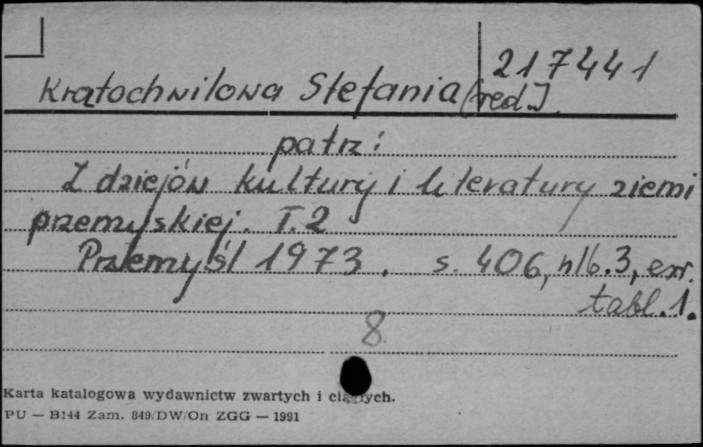 217441
Kratochwilowa Stefania [red.]
patrz:
Z dziejów kultury i literatury ziemi
przemyskiej. T. 2
Przemyśl 1973. s. 406, nlb. 3, err.
tabl. 1.
8
Karta katalogowa wydawnictw zwartych i ciągłych.
PU — B144 Zam. 849/DW/On ZGG — 1991